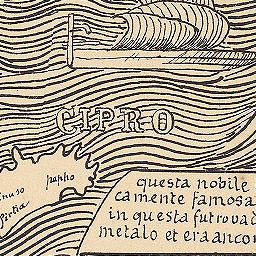 CIPRO
papho
questa nobile
camente famosa
in questa futrovad
metalo et era ancor